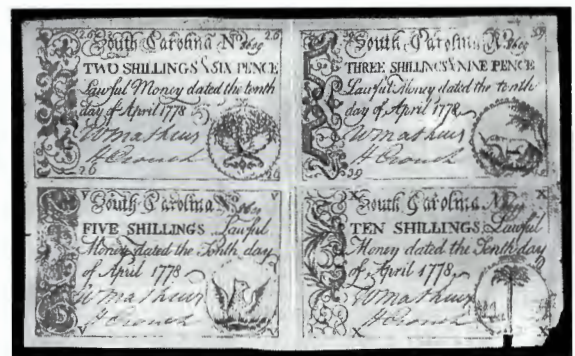 2.6 South Carolina No. 8609 2.6
TWO SHILLINGS & SIX PENCE
Lawful Money dated the tenth
day of April 1778
W Mathews
H Crouch
2.6
39 South Carolina No. 8609 39
THREE SHILLINGS & NINE PENCE
Lawful Money dated the tenth
day of April 1778
W Mathews
H Crouch
39
V South Carolina No. 8609 V
FIVE SHILLINGS Lawful
Money dated the Tenth day
of April 1778
W Mathews
H Crouch
V V
X South Carolina No. X
TEN SHILLINGS Lawful
Money dated the Tenth day
of April 1778
W Mathews
H Crouch
X